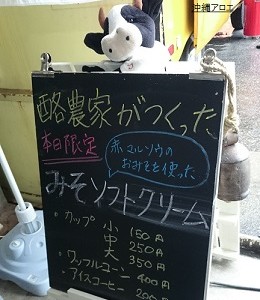 中縄アロエ
酪農家がつくった
本日限定
赤マルソウの
おみそを使った
みそソフトクリーム
・カップ 小 150円
中 250円
大 350円
・ワッフルコーン 400円
・アイスコーヒー 200円